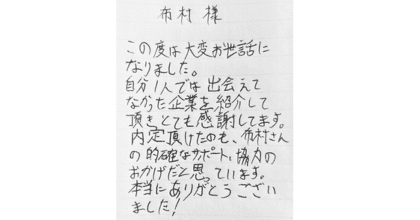 布村 様
この度は大変お世話に
なりました。
自分1人では出会えて
なかった企業を紹介して
頂きとても感謝してます。
内定頂けたのも、布村さん
の的確なサポート、協力の
おかげだと思っています。
本当にありがとうござい
ました!